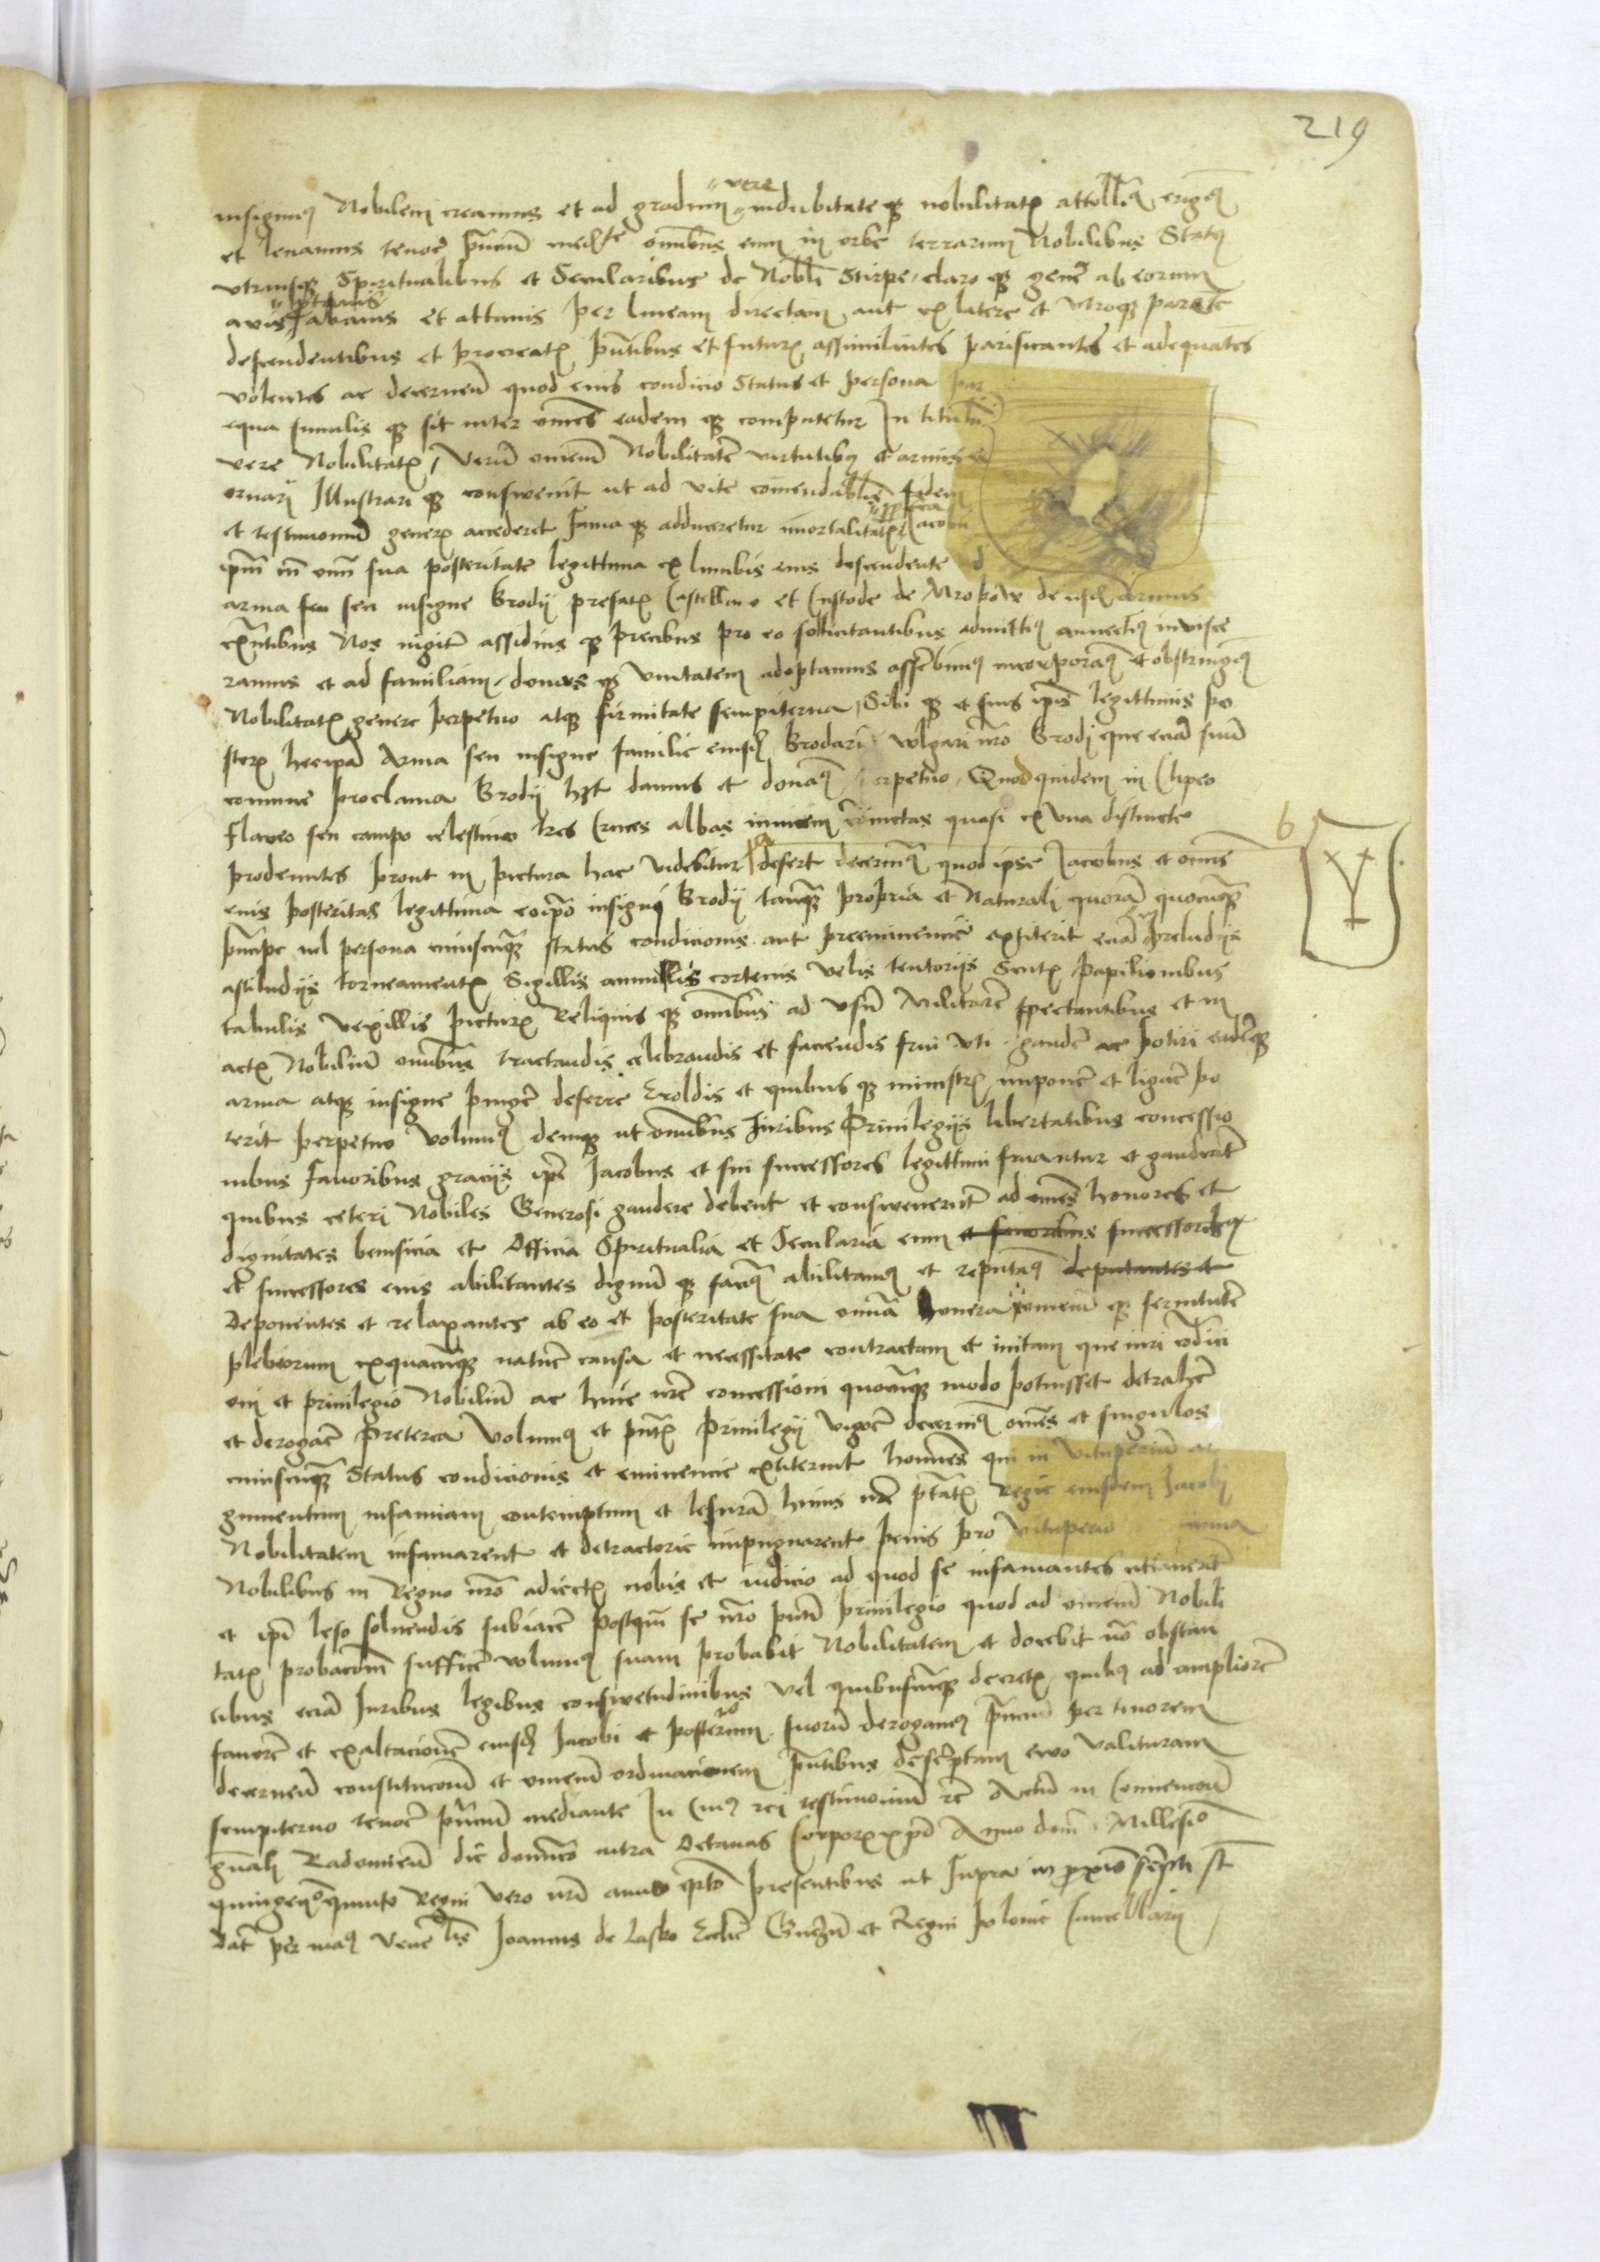 219
insignimus Nobilem creamus et ad gradum vere indubitateque nobilitatis attollimus erigimus
et levamus tenore presencium mediante omnibus eum in orbe terrarum Nobilibus Status
utriusque Spiritualibus et Secularibus de Nobili Stirpe claroque genere ab eorum
avis abavis et attavis per lineam directam aut ex latere et utroque parente
descendentibus et procreatis presentibus et futuris assimilantes parificantes et adequantes
volentes ac decernentes quod eius condicio Status et persona par
equa similisque sit inter omnes eademque computetur In titulum
vere Nobilitatis / Verum omnem Nobilitatem virtutibus et armis
ornari Illustrarique consuevit ut ad vite comendabilis fidem
et testimonium generis accederet famaque adduceretur imortalitatis Jacobum
ipsum cum omni sua posteritate legittima ex lumbis eius descendente ad
arma seu insigne Brodij prefatis Castellano et Custode de
Nos iugiter assidueque precibus pro eo sollicitantibus admittimus annectimus invisce
ramus et ad familiam domus unitatem adoptamus asscribimus incorporamus et obstringimus
Nobilitatis genere perpetuo atque firmitate sempiterna, Sibique et suis ipsis legittimis po
steris hec ipsa Arma seu insigne familie eiusdem vulgari nostro Brodij que eciam suum
comune proclama Brodij habet damus et donamus perpetuo, Quod quidem in Clipeo
flaveo seu campo celestino tres Cruces albas invicem coniunctas quasi ex una distincte
prodeuntes prout in pictura hac videbitur defert decernimus quod ipse Jacobus et omnis
eius posteritas legittima eo ipso insigni Brodij tanquam propria et Naturali quoram quocumque
principe vel persona cuiuscumque status condicionis aut preeminencie extiterit eciam preludijs
astiludijs torneamentis Sigillis annullis cortenis velis tentorijs Scutis papilionibus
tabulis vexillis picturis Reliquisque omnibus ad usum Militarem spectantibus et in
actis Nobilium omnibus tractandis celebrandis et faciendis frui uti gaudere ac potiri eademque
arma atque insigne pingere deferre Eroldis et quibusque ministris imponere et ligare po
terit perpetuo volumus denique ut omnibus Juribus Privilegijs libertatibus concessio
nibus favoribus gracijs ipse Jacobus et sui successores legittimi fruantur et gaudeant
quibus ceteri Nobiles Generosi gaudere debent et consueverunt ad omnes honores et
dignitates beneficia et Officia Spiritualia et Secularia eum et favoribus successoribus
et successores eius abilitantes dignumque facimus abilitamus et reputamus deputantes et
Deponentes et relaxantes ab eo et posteritate sua omnia honera omnemque servitutem
plebeorum ex quacumque nature causa et necessitate contractam et initam que iuri condici
oni et privilegio Nobilium ac huic nostre concessioni quocumque modo potuisset detrahere
et derogare Preterea volumus et presentis Privilegij vigore decernimus omnes et singulos
cuiuscumque Status condicionis et eminencie extiterint homines qui in vituperium ar
gumentum infamiam contemptum et lesuram huius nostre potestatis Regie eiusdem Jacobi
Nobilitatem infamarent et detractorie impugnarent penis pro vituperio
Nobilibus in Regno nostro adiectis nobis et iudicio ad quod se infamantes citaverit
et ipsi leso solvendis subiacere postquam se nostro presenti privilegio quod ad omnem Nobili
tatis probacionem sufficere volumus suam probabit Nobilitatem et docebit non obstan
tibus eciam Juribus legibus consuetudinibus vel quibuscumque decretis quibus ad ampliorem
favorem et exaltacionem eiusdem Jacobi et posterorum suorum derogamus presencium per tenorem
decernentes constitucionem et omnem ordinacionem presentibus descriptam evo valituram
sempiterno tenore presencium mediante In Cuius rei testimonium etc Actum in Convencione
generali Radomiensi die dominico intra Octavas Corporis Christi Anno domini Millesimo
quingentesimo quinto Regni vero nostri anno quarto presentibus ut supra in proximo scripti sunt
Datum per manus Venerabilis Joannis de Lasko Ecclesie Gneznensis et Regni Polonie Cancellarij